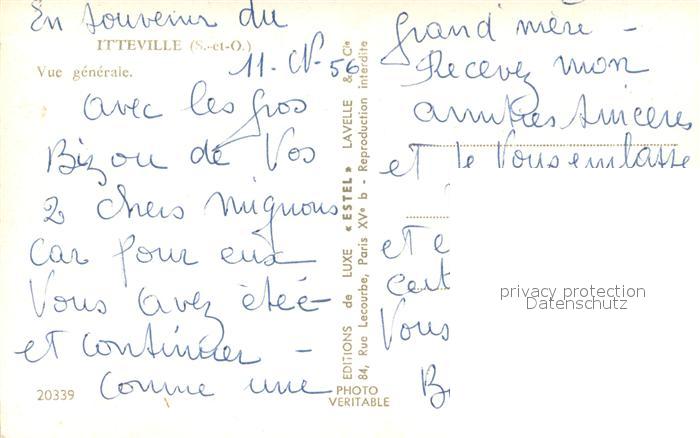 En souvenir du
ITTEVILLE (S.-et-O.)
11. N. 56
Vue générale.
avec les gros
Bizou de Vos
2 chers mignons
car pour eux
Vous avez étée
et continuer -
comme une
20339
EDITIONS de LUXE « ESTEL » LAVELLE & Cie
84, Rue Lecourbe, Paris XVe b - Reproduction interdite
PHOTO
VERITABLE
grand'mère -
Recevez mon
amitiés sinceres
et je Vous embrasse
et
Vous
privacy protection
Datenschutz